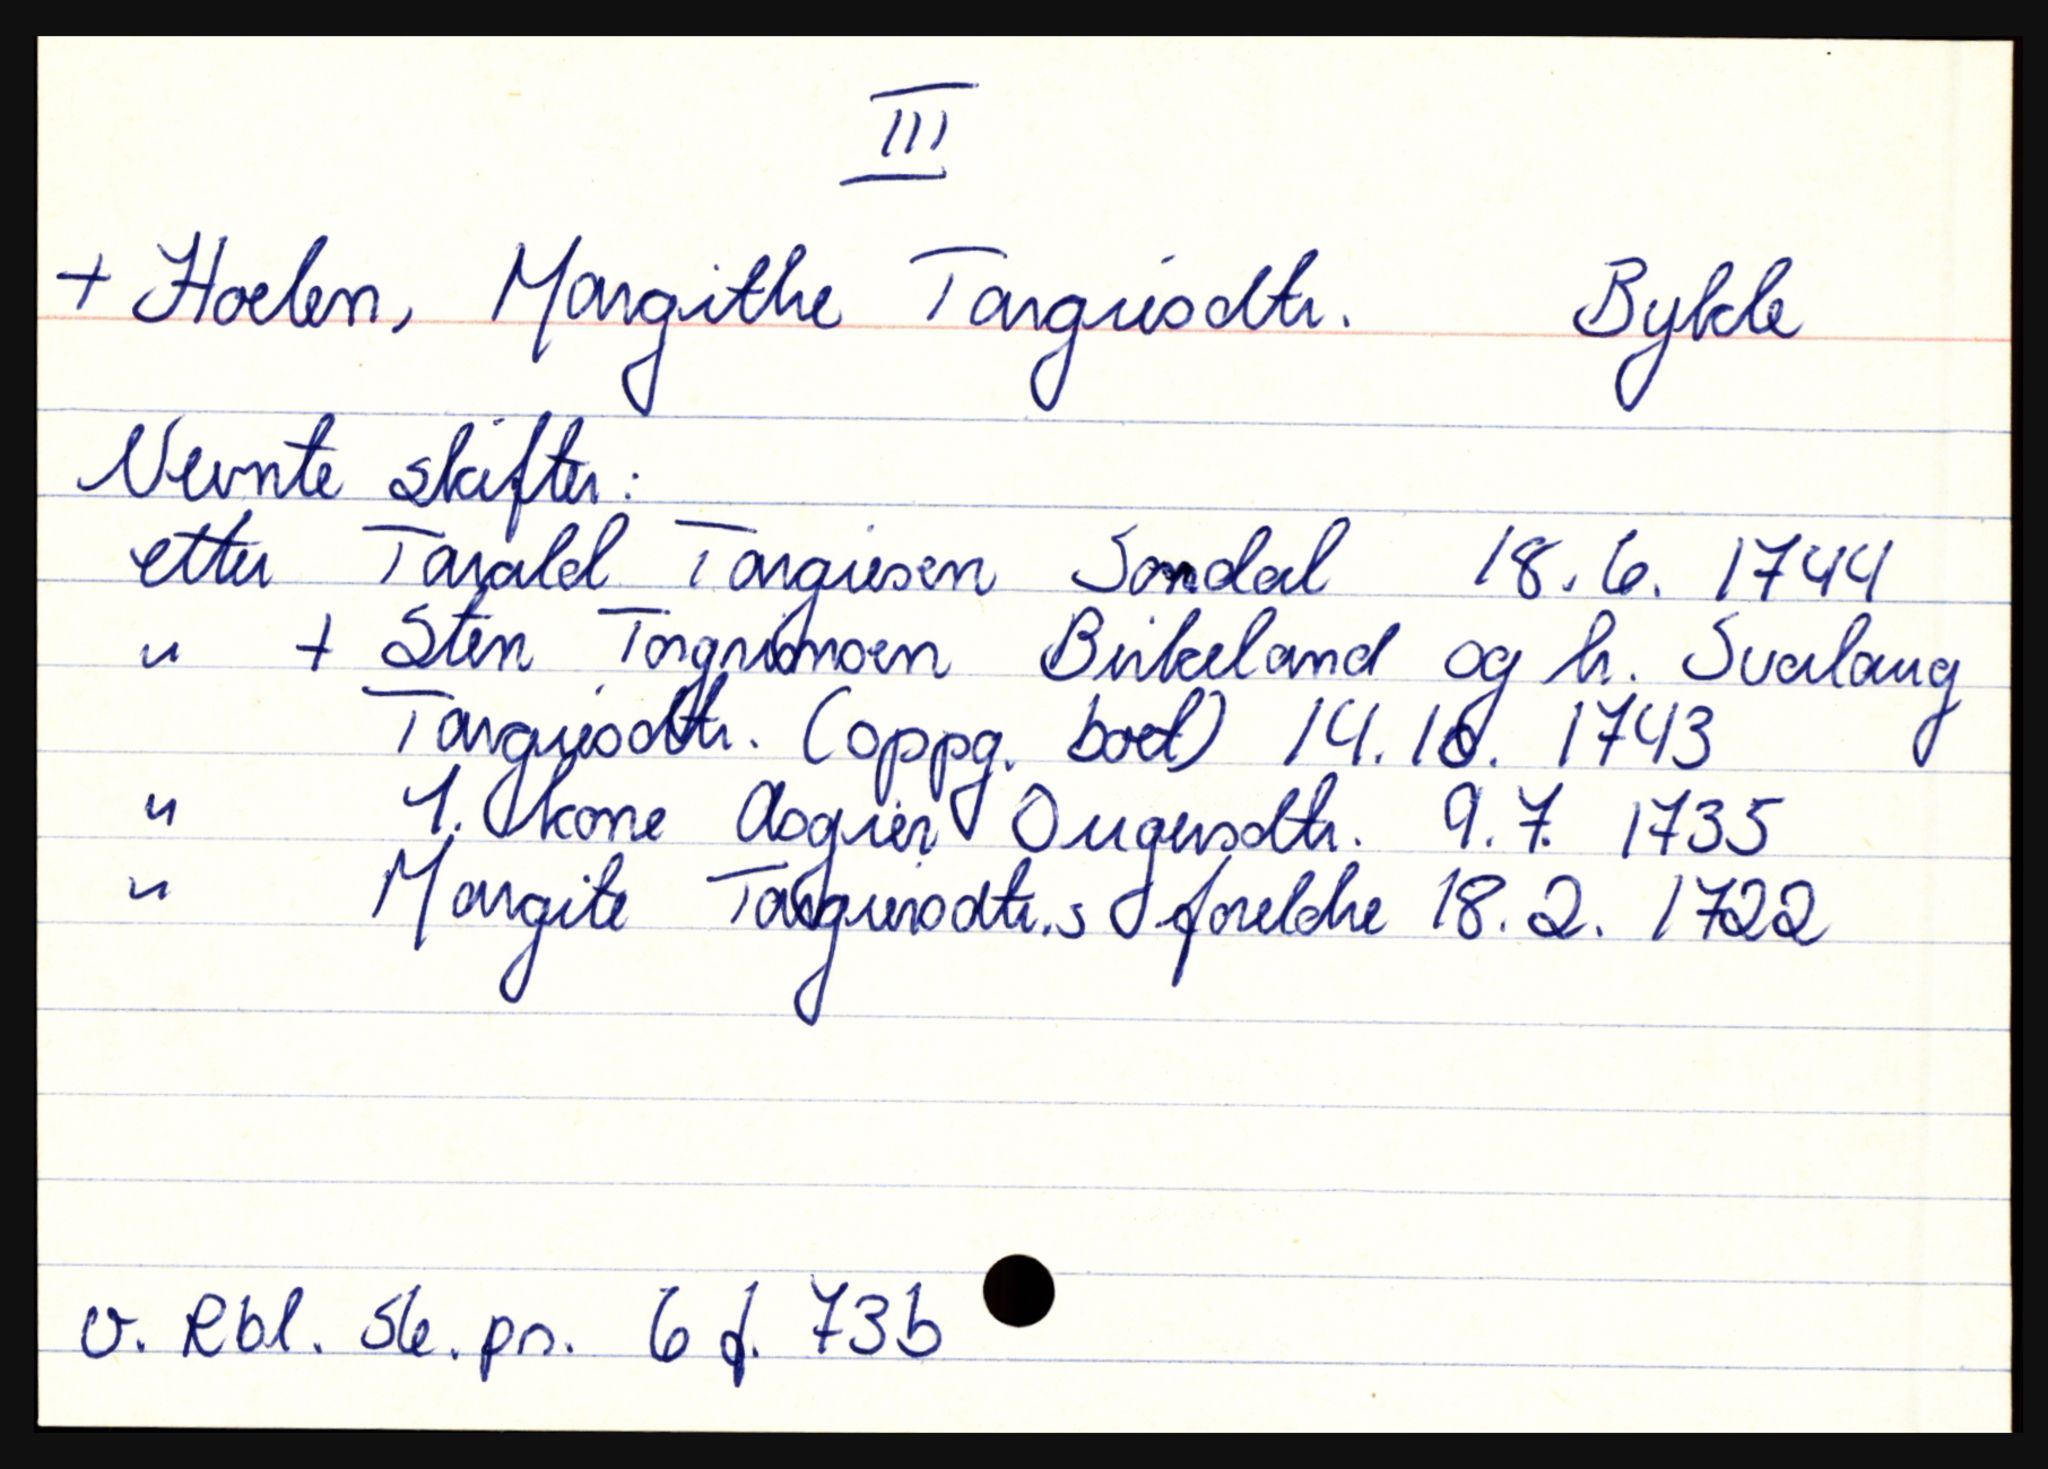 III
+ Hoelen, Margithe Targiesdtr. Bykle
Nevnte skifter:
etter Tarald Targiesen Sondal 18.6. 1744
" + Sten Torgrimsen Birkeland og h. Svalaug
Targiesdtr. (oppg. boet) 14.10. 1743
" 1. kone Asgier Ougensdtr. 9.7. 1735
" Margite Targiesdtr.s foreldre 18.2. 1722
v. Rbl. Sk.pr. 6 f. 73b